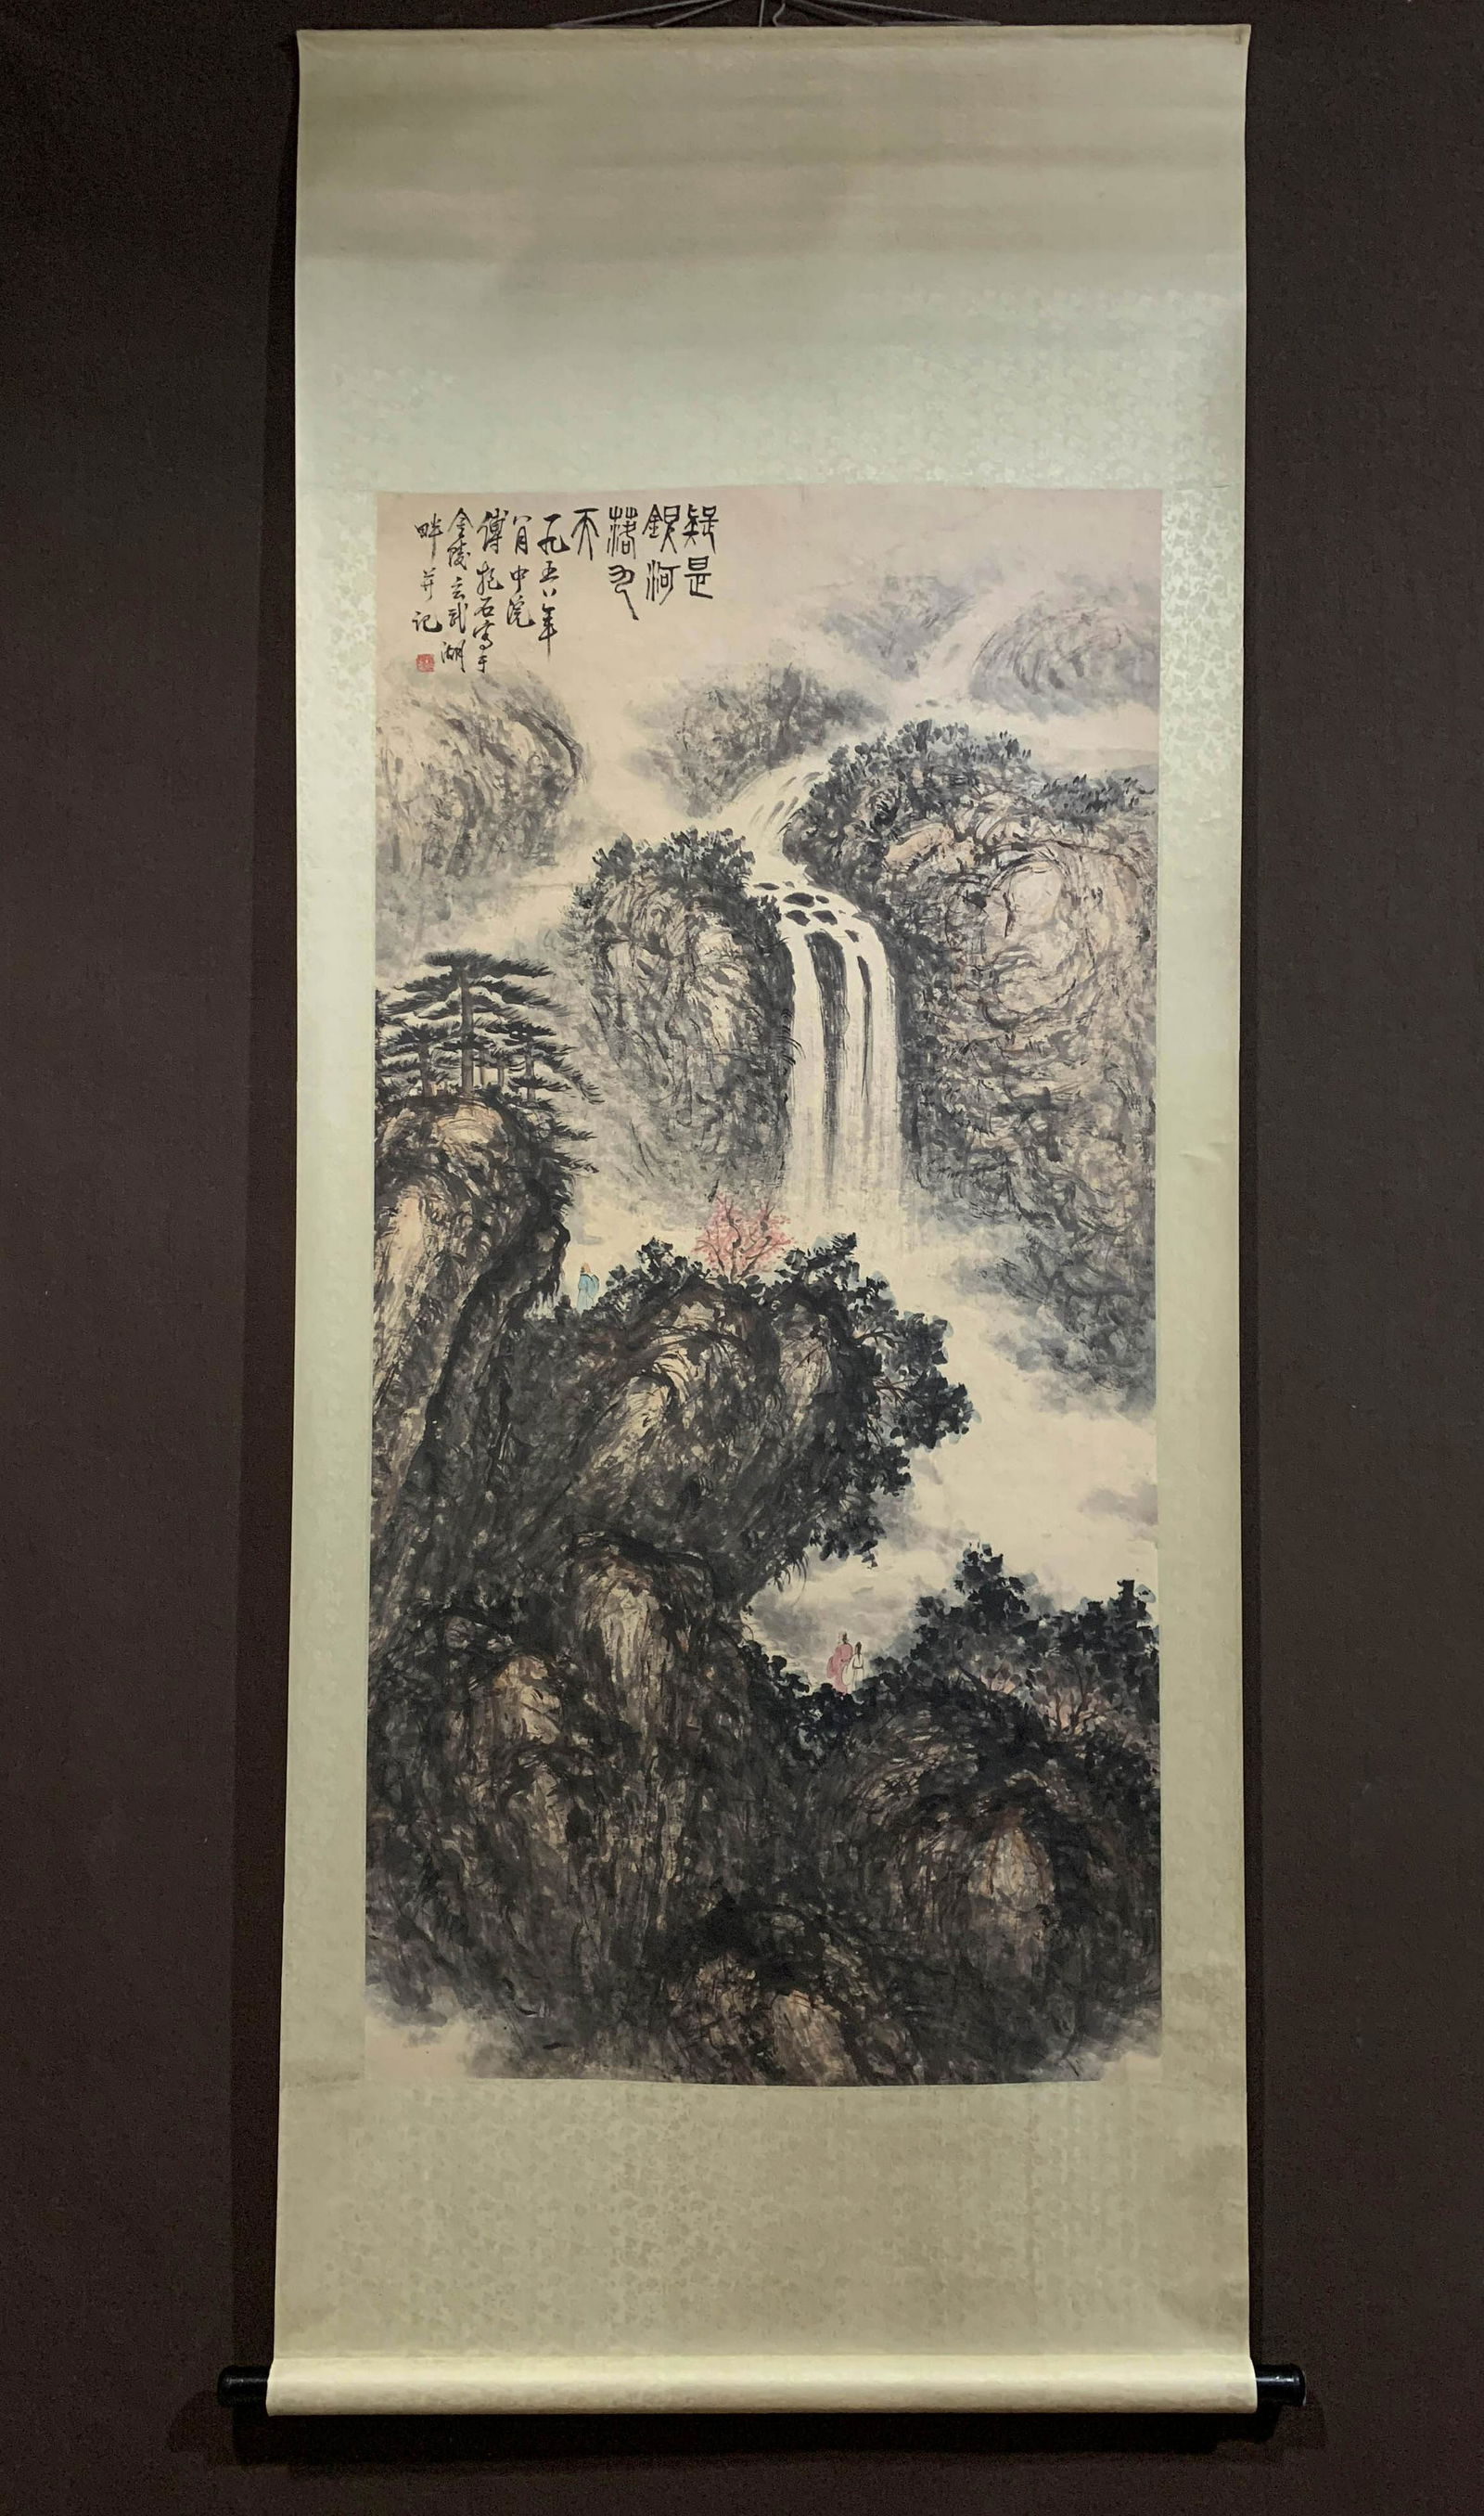 疑是
銀河
落九
天
一九五八年
八月中浣
傅抱石写于
金陵玄武湖
畔并记